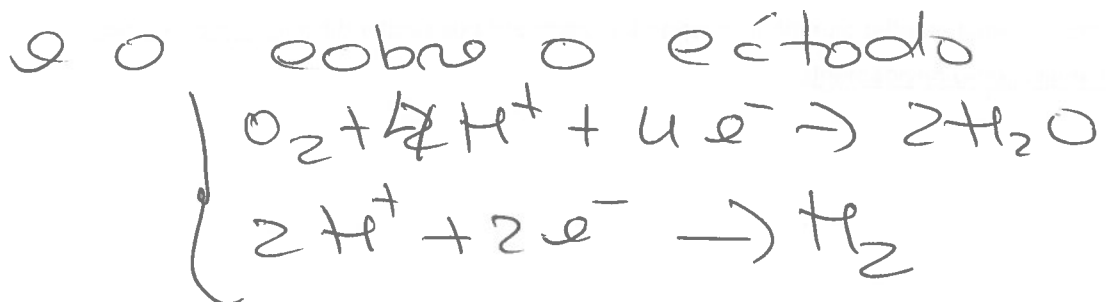 e o cobre o cátodo
O₂ + 4H⁺ + 4e⁻ → 2H₂O
2H⁺ + 2e⁻ → H₂